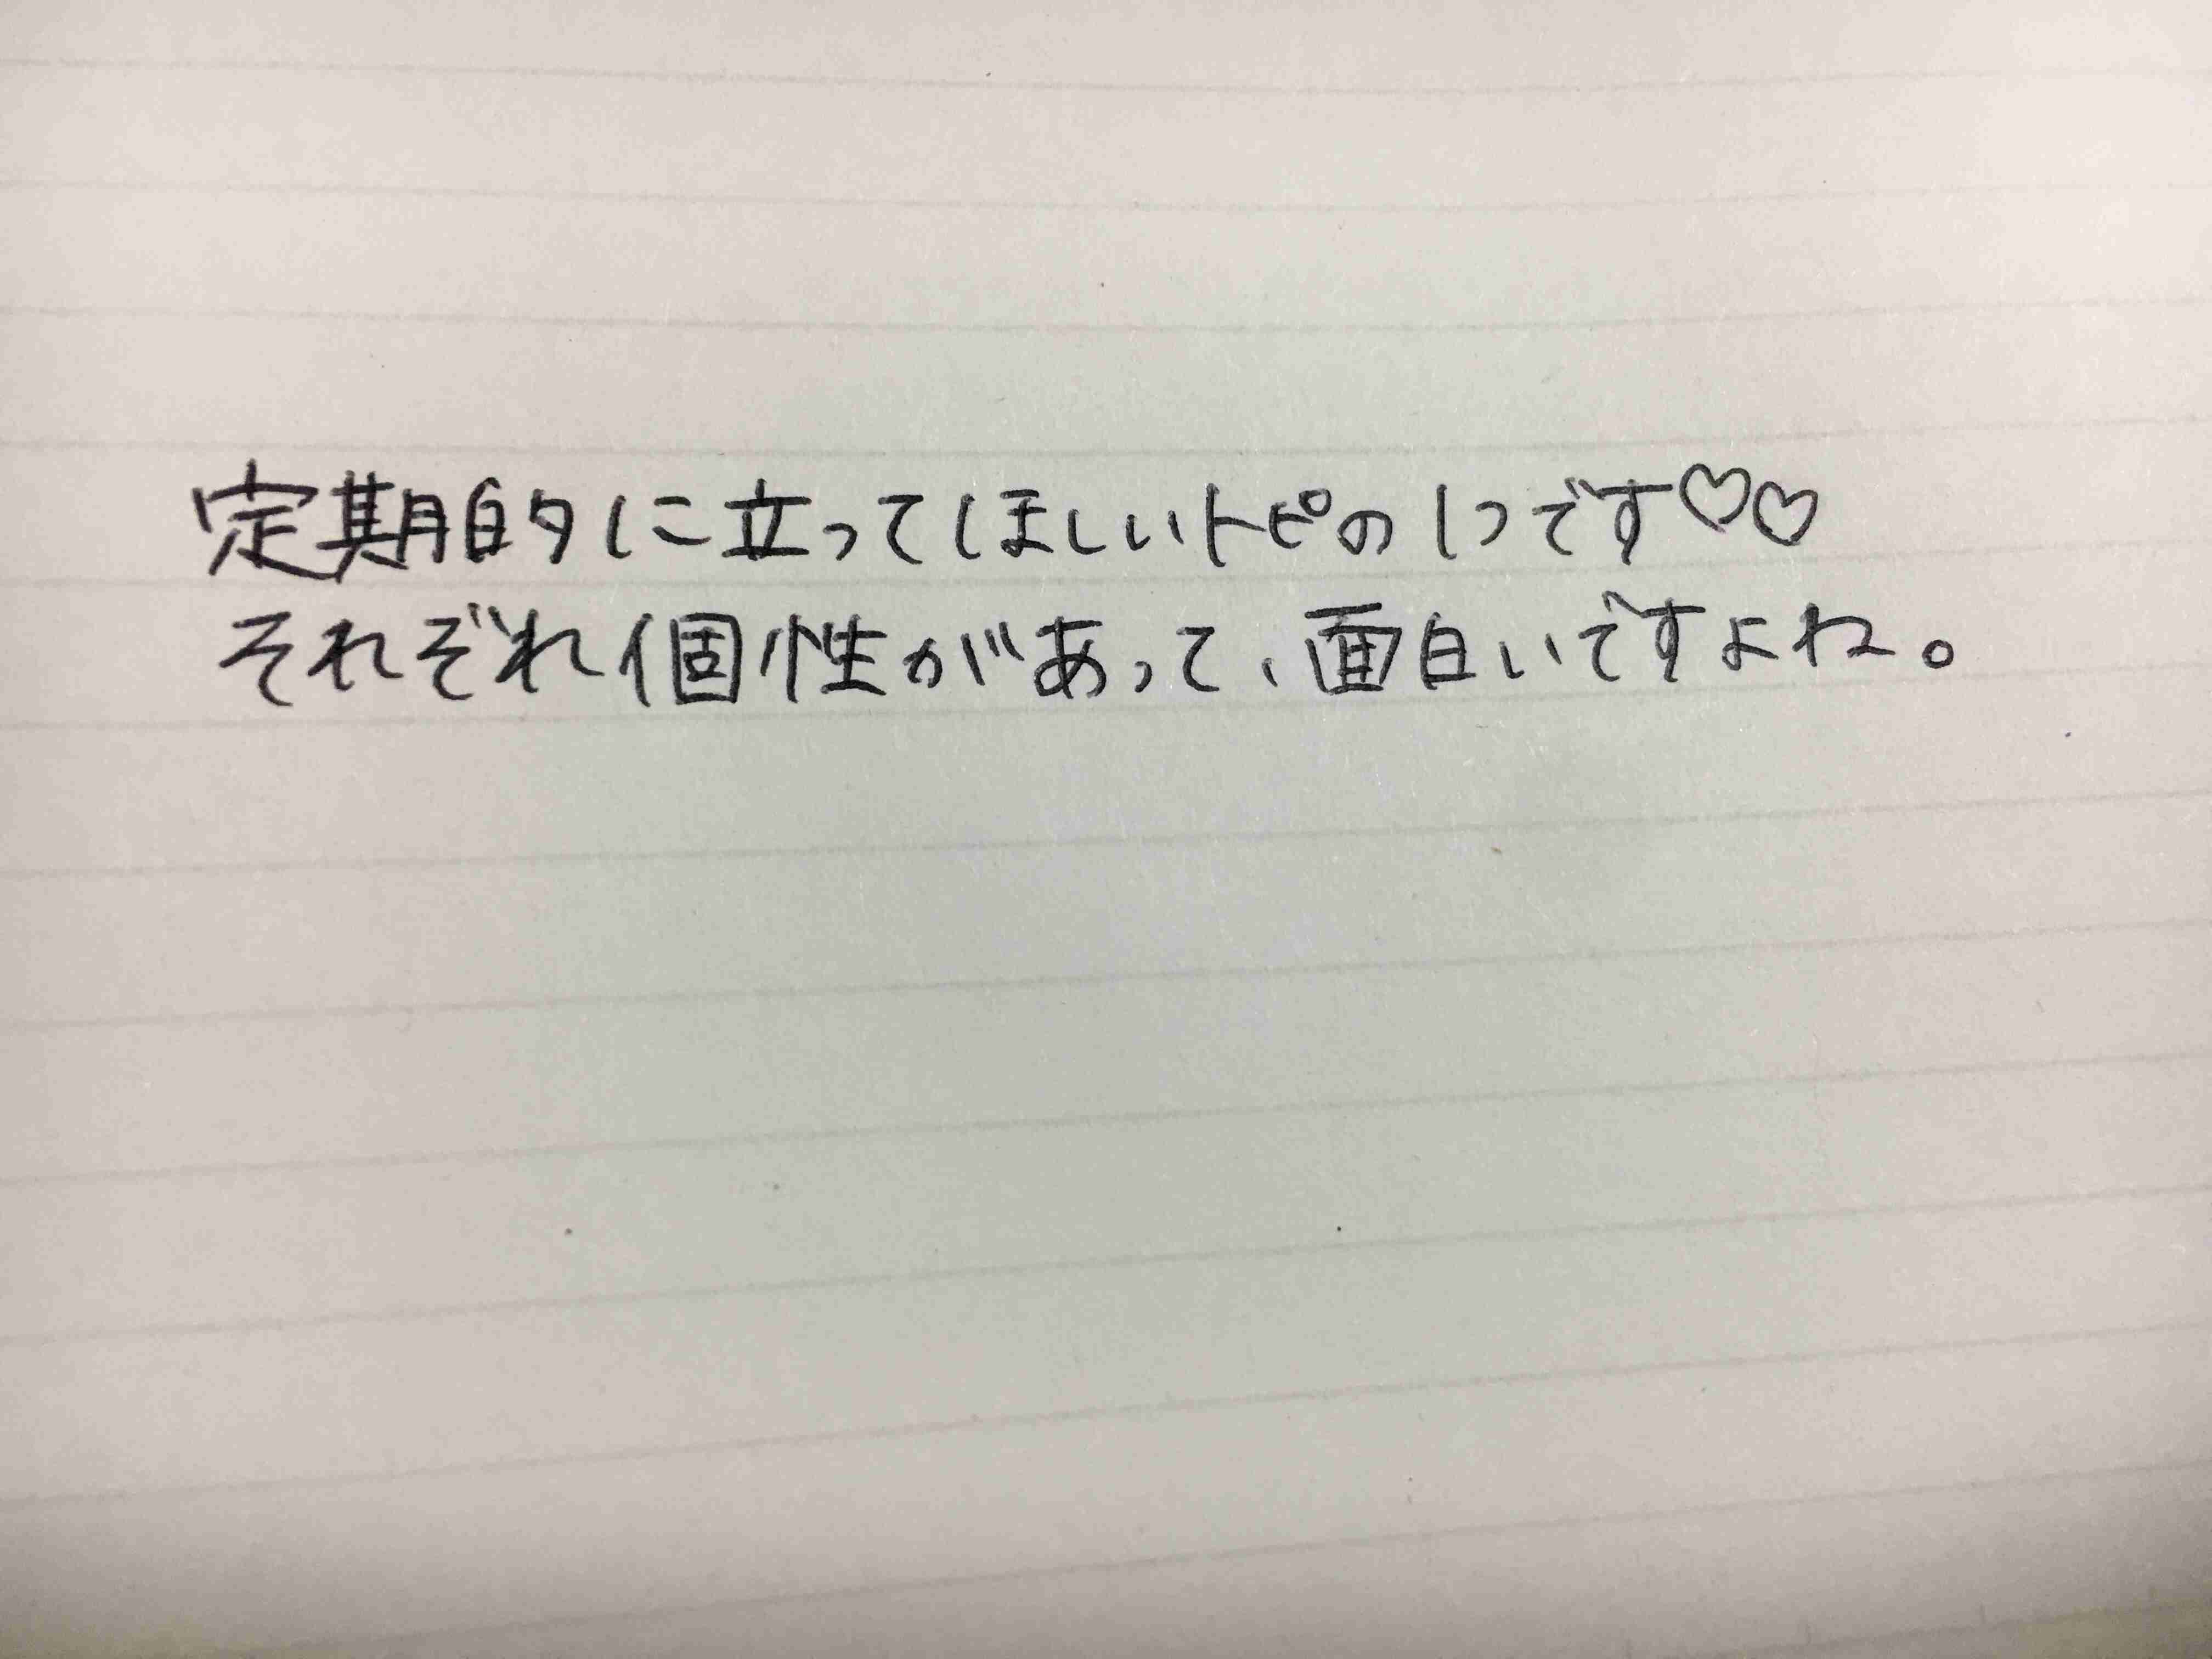 定期的に立ってほしいトピの1つです♡♡
それぞれ個性があって、面白いですよね。